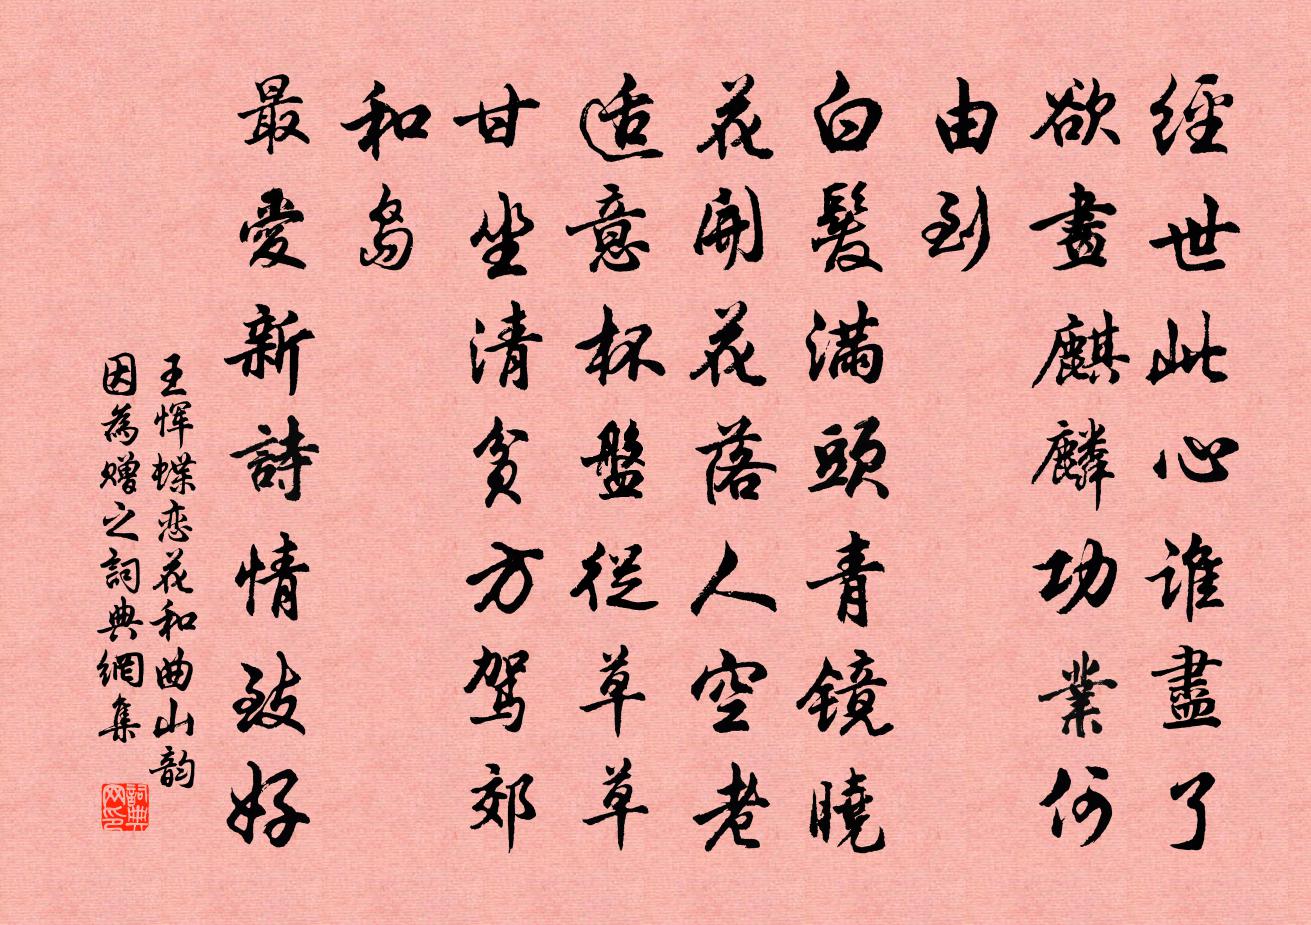 經世此心誰盡了
欲畫麒麟功業何
由到
白髮滿頭青镜曉
花開花落人空老
适意杯盤從草草
甘坐清貧方駕郊
和島
最愛新詩情致好
王恽蝶恋花和曲山韵
因為赠之詞典網集
詞典
网印